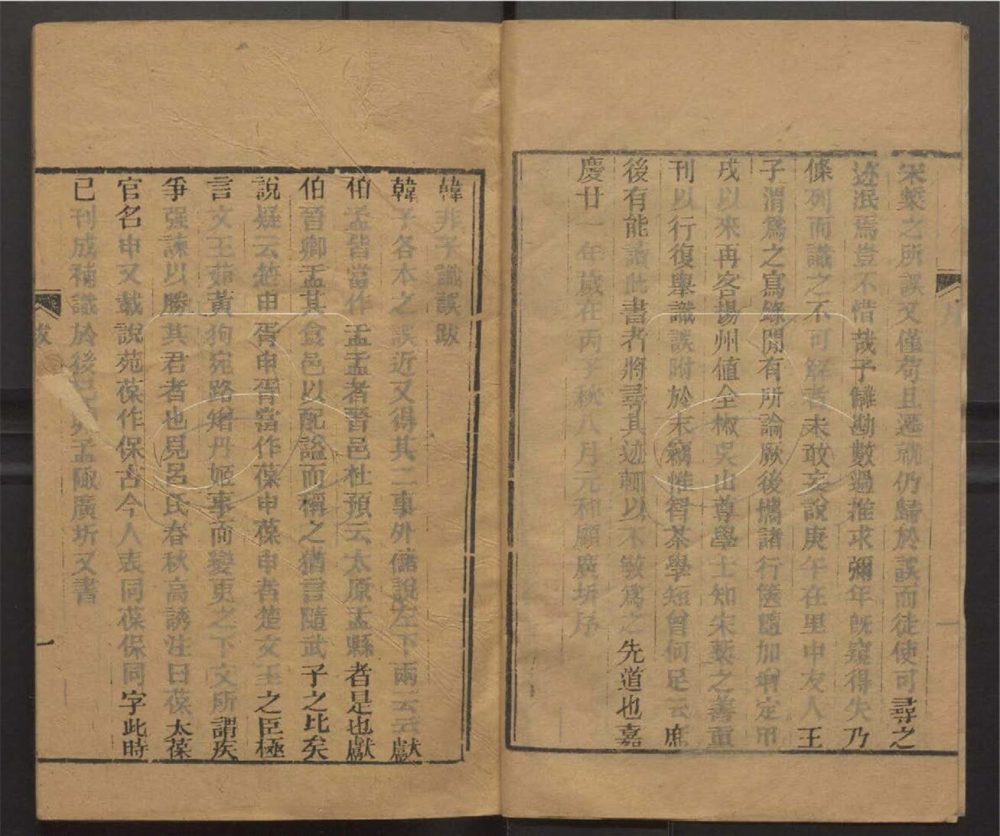 宋槧之所誤又僅苟且遷就仍歸於誤而徒使可尋之
迹泯焉豈不惜哉予讎勘數過推求彌年旣窺得失乃
條列而識之不可解者未敢妄說庚午在里中友人王
子渭爲之寫錄閒有所論厥後攜諸行篋隨加增定甲
戌以來再客揚州值全椒吳山尊學士知宋槧之善重
刊以行復舉識誤附於末竊惟智茶學短曾何足云庶
後有能讀此書者將尋其迹輒以不敏爲之先道也嘉
慶廿一年歲在丙子秋八月元和顧廣圻序
韓非子識誤跋
韓子各本之誤近又得其二事外儲說左下兩云云獻
伯孟皆當作盂盂者晉邑杜預云太原盂縣者是也獻
伯晉卿盂其食邑以配謚而稱之猶言隨武子之比矣
說疑云楚申胥申胥當作葆申葆申者楚文王之臣極
言文王茹黃狗宛路矰丹姬事而變更之下文所謂疾
爭强諫以勝其君者也見呂氏春秋高誘注曰葆太葆
官名申又載說苑葆作保古今人表同葆保同字此時
已刊成補識於後
孟陬廣圻又書
序
一
跋
一